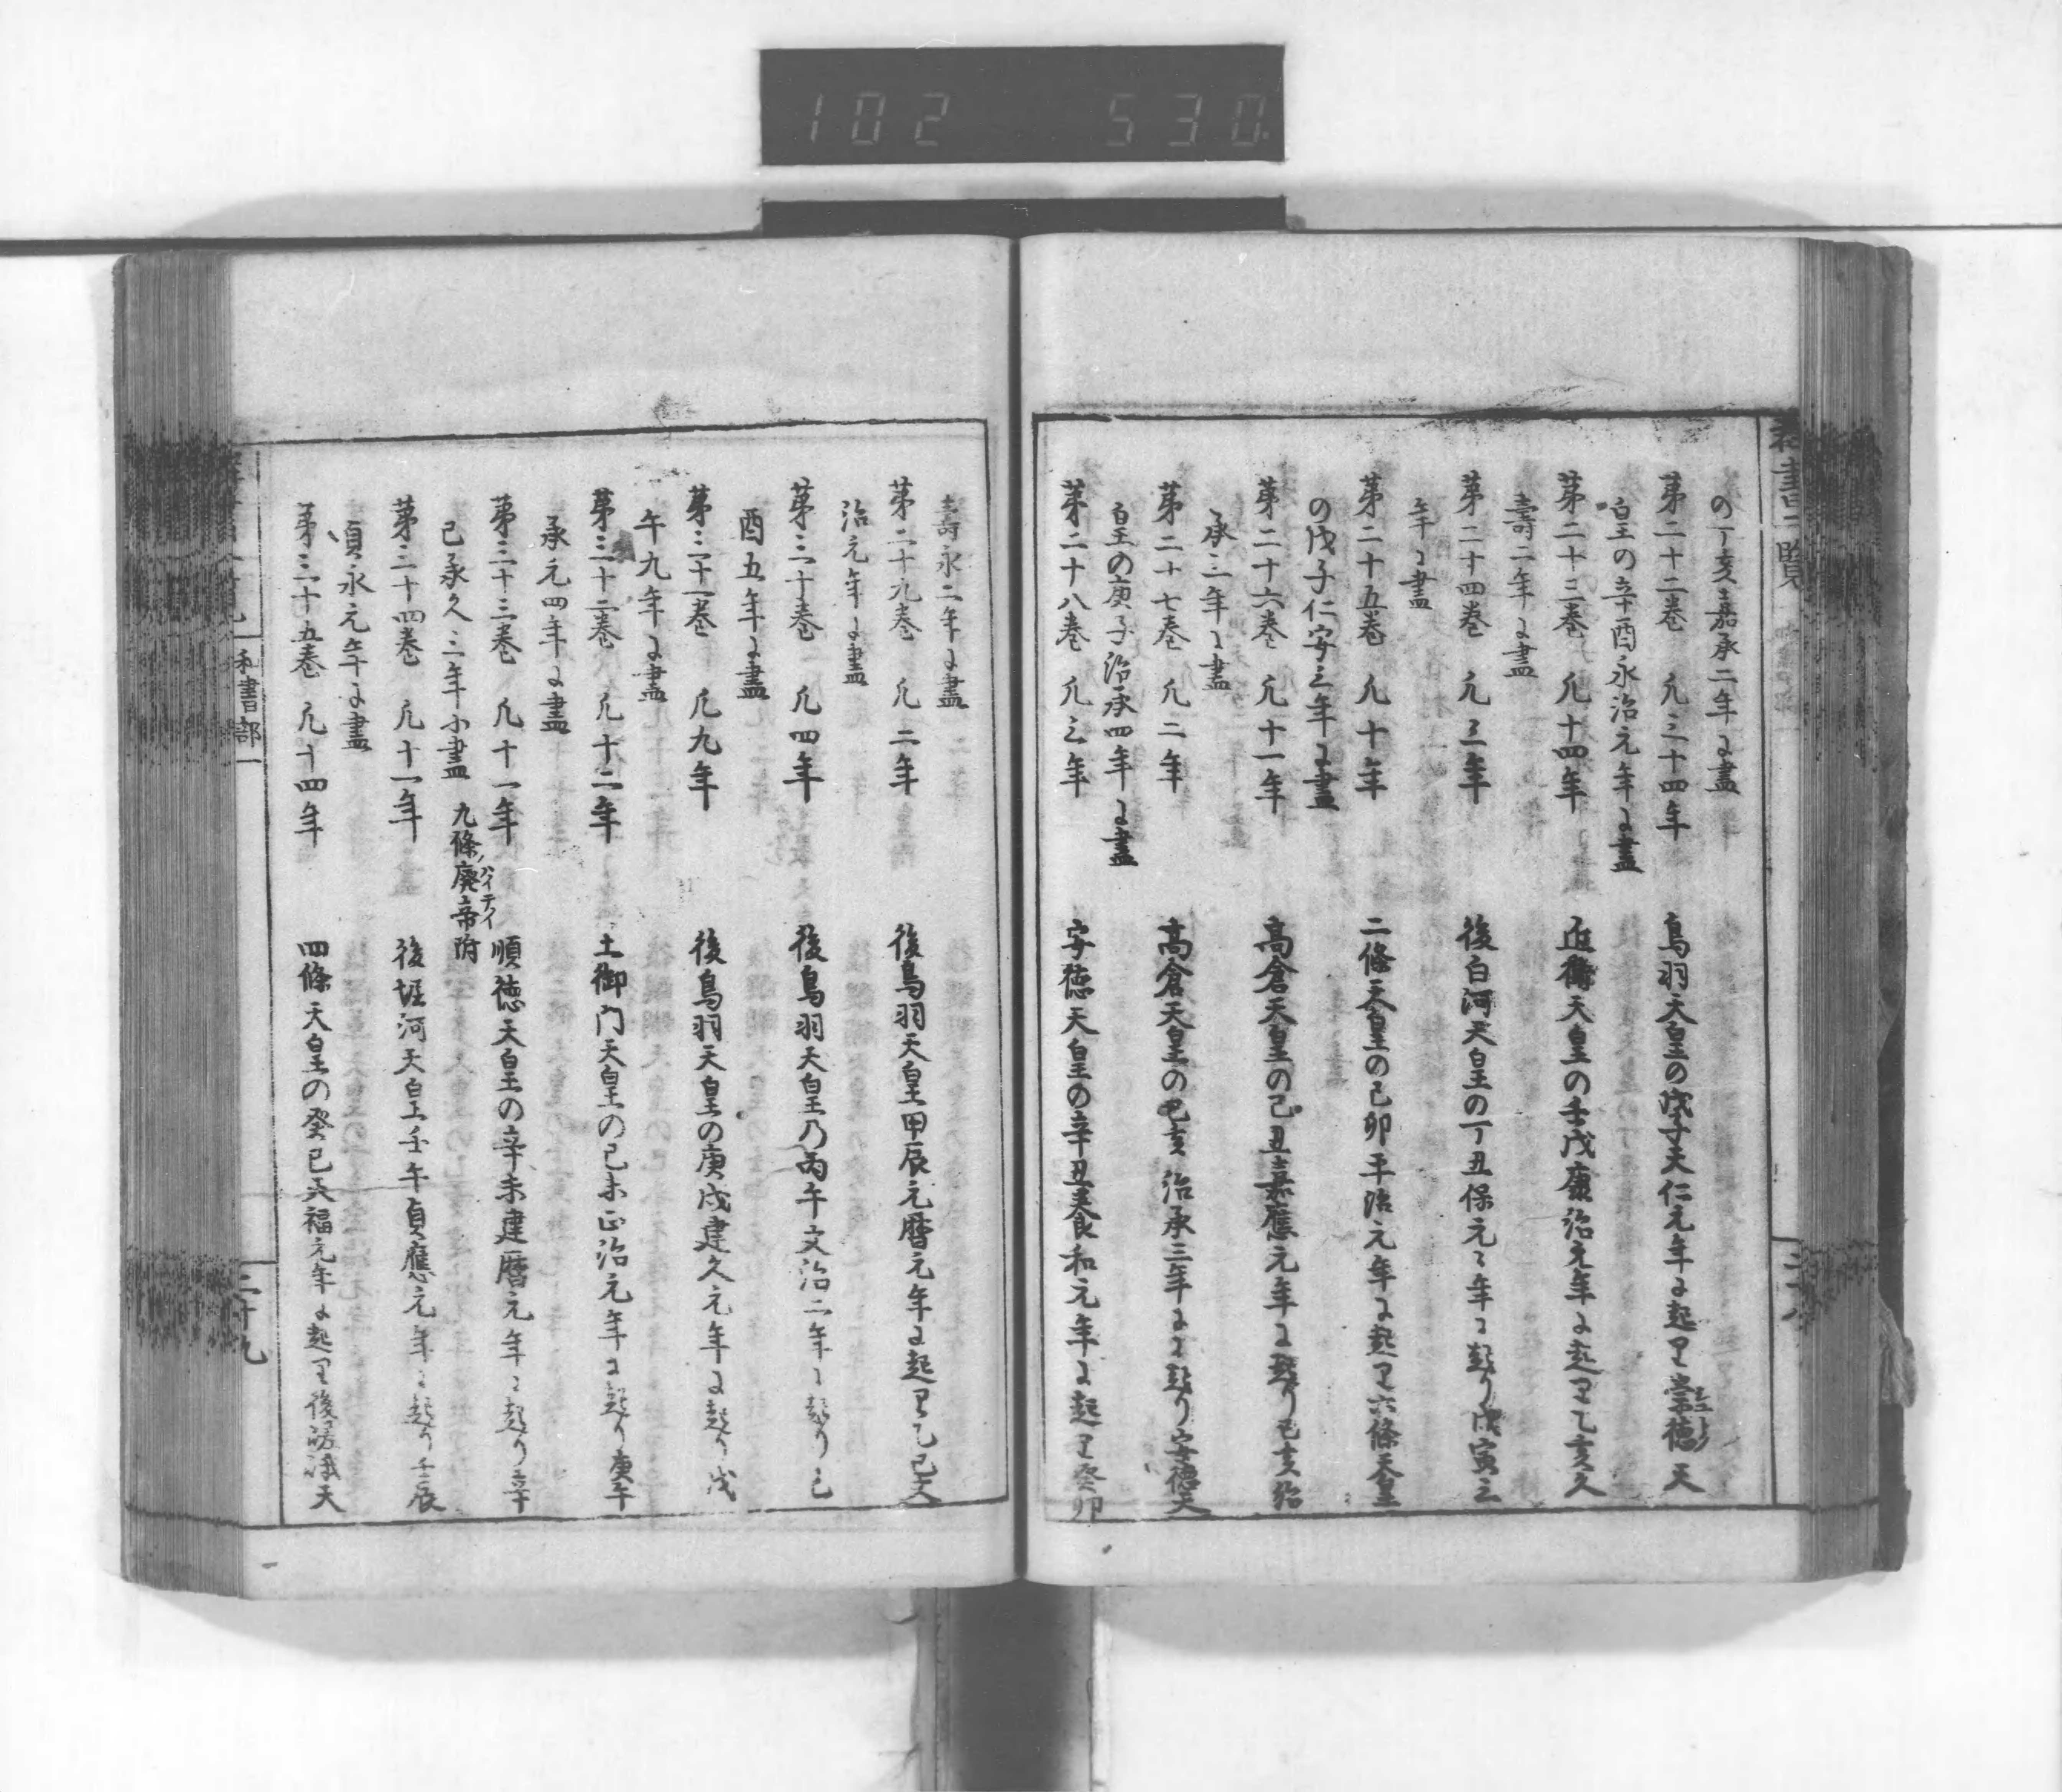 102 530
の丁亥嘉承二年ニ盡
第二十二巻 凡三十四年 鳥羽天皇の戊子天仁元年ニ起リ崇徳天
皇の辛酉永治元年ニ盡
第二十三巻 凡十四年 近衛天皇の壬戌康治元年ニ起リ乙亥久
壽二年ニ盡
第二十四巻 凡三年 後白河天皇の丁丑保元〻年ニ起リ戊寅三
年ニ盡
第二十五巻 凡十年 二條天皇の己卯平治元年ニ起リ六條天皇
の戊子仁安三年ニ盡
第二十六巻 凡十一年 高倉天皇の己丑嘉應元年ニ起リ己亥治
承三年ニ盡
第二十七巻 凡二年 高倉天皇の己亥治承三年ニ起リ安徳天
皇の庚子治承四年ニ盡
第二十八巻 凡三年 安徳天皇の辛丑養和元年ニ起リ癸卯
壽永二年ニ盡
第二十九巻 凡二年 後鳥羽天皇甲辰元暦元年ニ起リ乙巳文
治元年ニ盡
第三十巻 凡四年 後鳥羽天皇乃丙午文治二年ニ起リ己
酉五年ニ盡
第三十一巻 凡九年 後鳥羽天皇の庚戌建久元年ニ起リ戊
午九年ニ盡
第三十二巻 凡十二年 土御門天皇の己未正治元年ニ起リ庚午
承元四年ニ盡
第三十三巻 凡十一年 順徳天皇の辛未建暦元年ニ起リ辛
巳承久三年小盡 九條廢帝附
ハイテイ
第三十四巻 凡十一年 後堀河天皇壬午貞應元年ニ起リ壬辰
貞永元年ニ盡
第三十五巻 凡十四年 四條天皇の癸巳天福元年ニ起リ後嵯峨天
和書部一
二十九